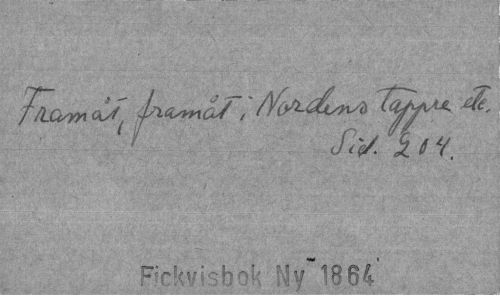 Framåt, framåt i Nordens tappre etc.
Sid. 204.
Fickvisbok Ny 1864